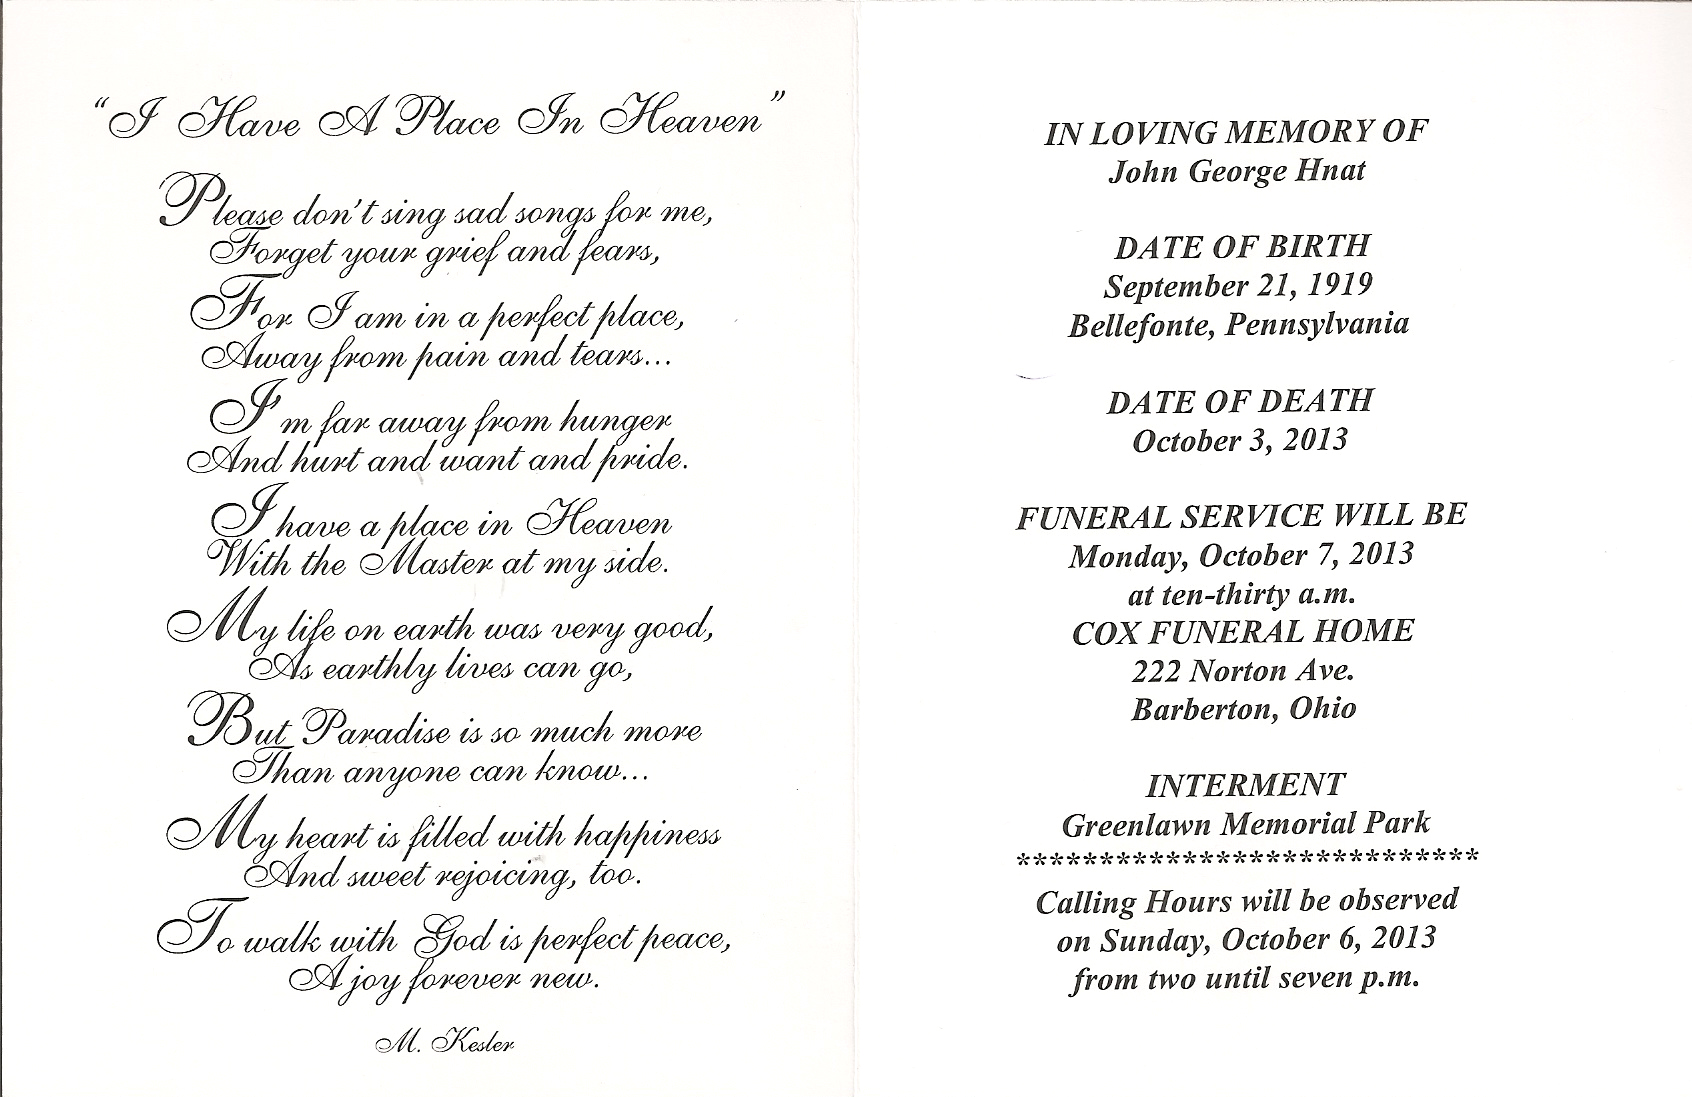 "I Have A Place In Heaven"
Please don't sing sad songs for me,
Forget your grief and fears,
For I am in a perfect place,
Away from pain and tears...
I'm far away from hunger
And hurt and want and pride.
I have a place in Heaven
With the Master at my side.
My life on earth was very good,
As earthly lives can go,
But Paradise is so much more
Than anyone can know...
My heart is filled with happiness
And sweet rejoicing, too.
To walk with God is perfect peace,
A joy forever new.
M. Kesler
IN LOVING MEMORY OF
John George Hnat
DATE OF BIRTH
September 21, 1919
Bellefonte, Pennsylvania
DATE OF DEATH
October 3, 2013
FUNERAL SERVICE WILL BE
Monday, October 7, 2013
at ten-thirty a.m.
COX FUNERAL HOME
222 Norton Ave.
Barberton, Ohio
INTERMENT
Greenlawn Memorial Park
****************************
Calling Hours will be observed
on Sunday, October 6, 2013
from two until seven p.m.